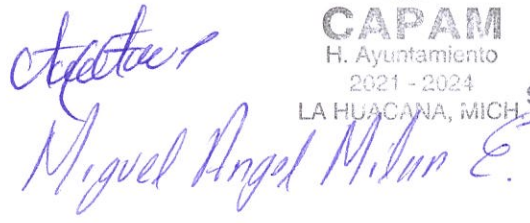 CAPAM
H. Ayuntamiento
2021 - 2024
LA HUACANA, MICH.
Miguel Angel Milan E.